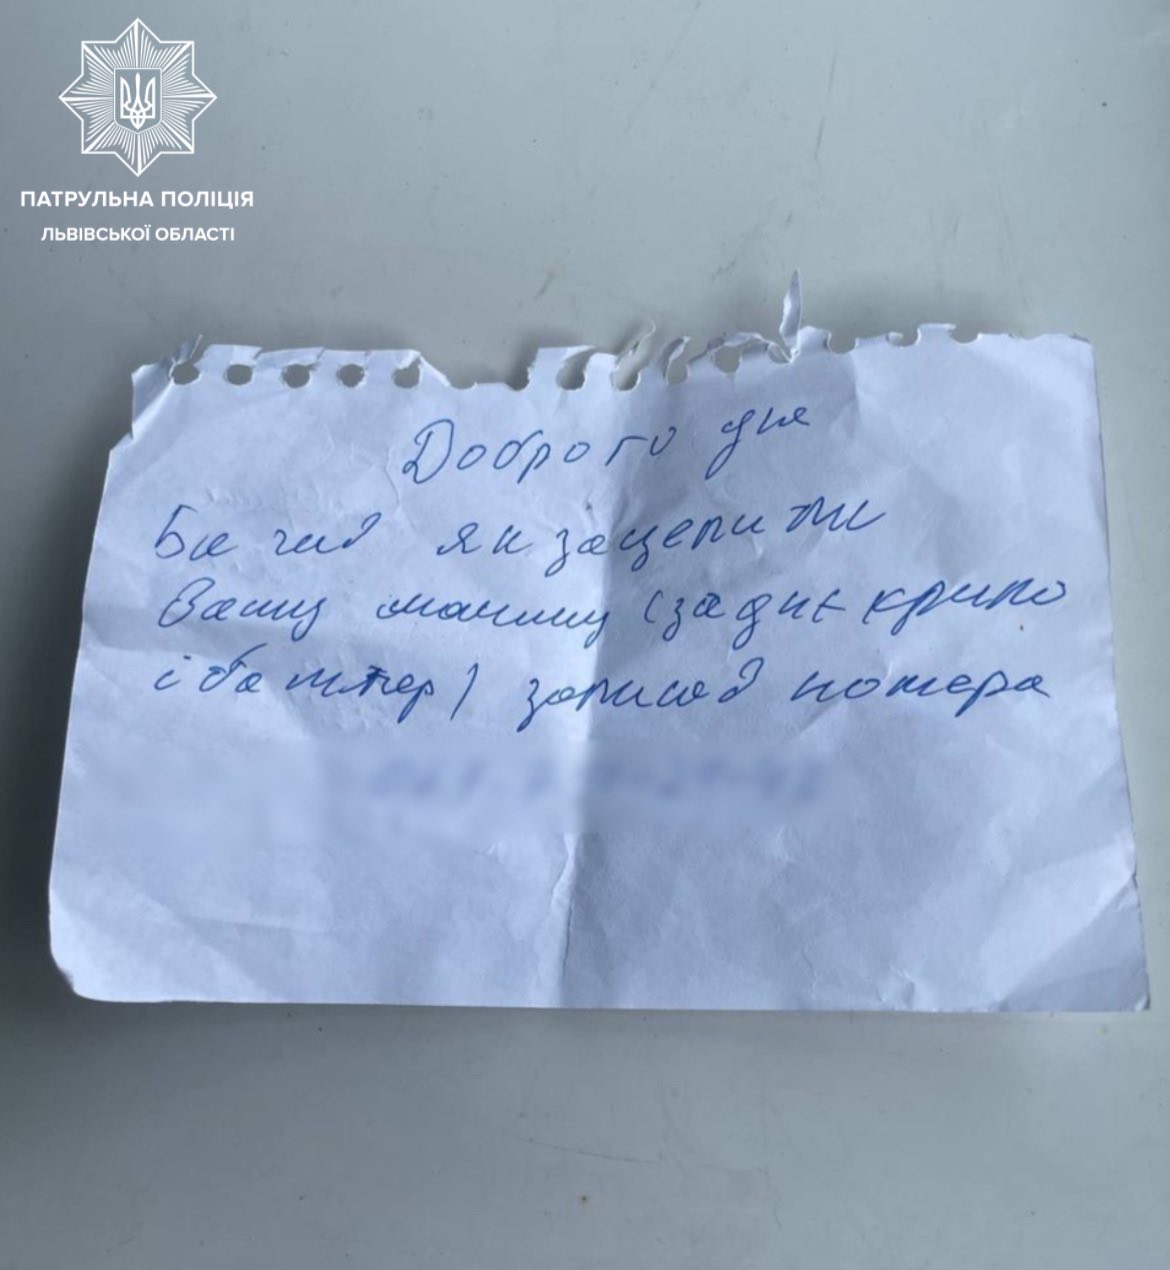 ПАТРУЛЬНА ПОЛІЦІЯ
ЛЬВІВСЬКОЇ ОБЛАСТІ
Доброго дня
Бачив як зацепили
Вашу машину (заднє крило
і бампер) записав номера